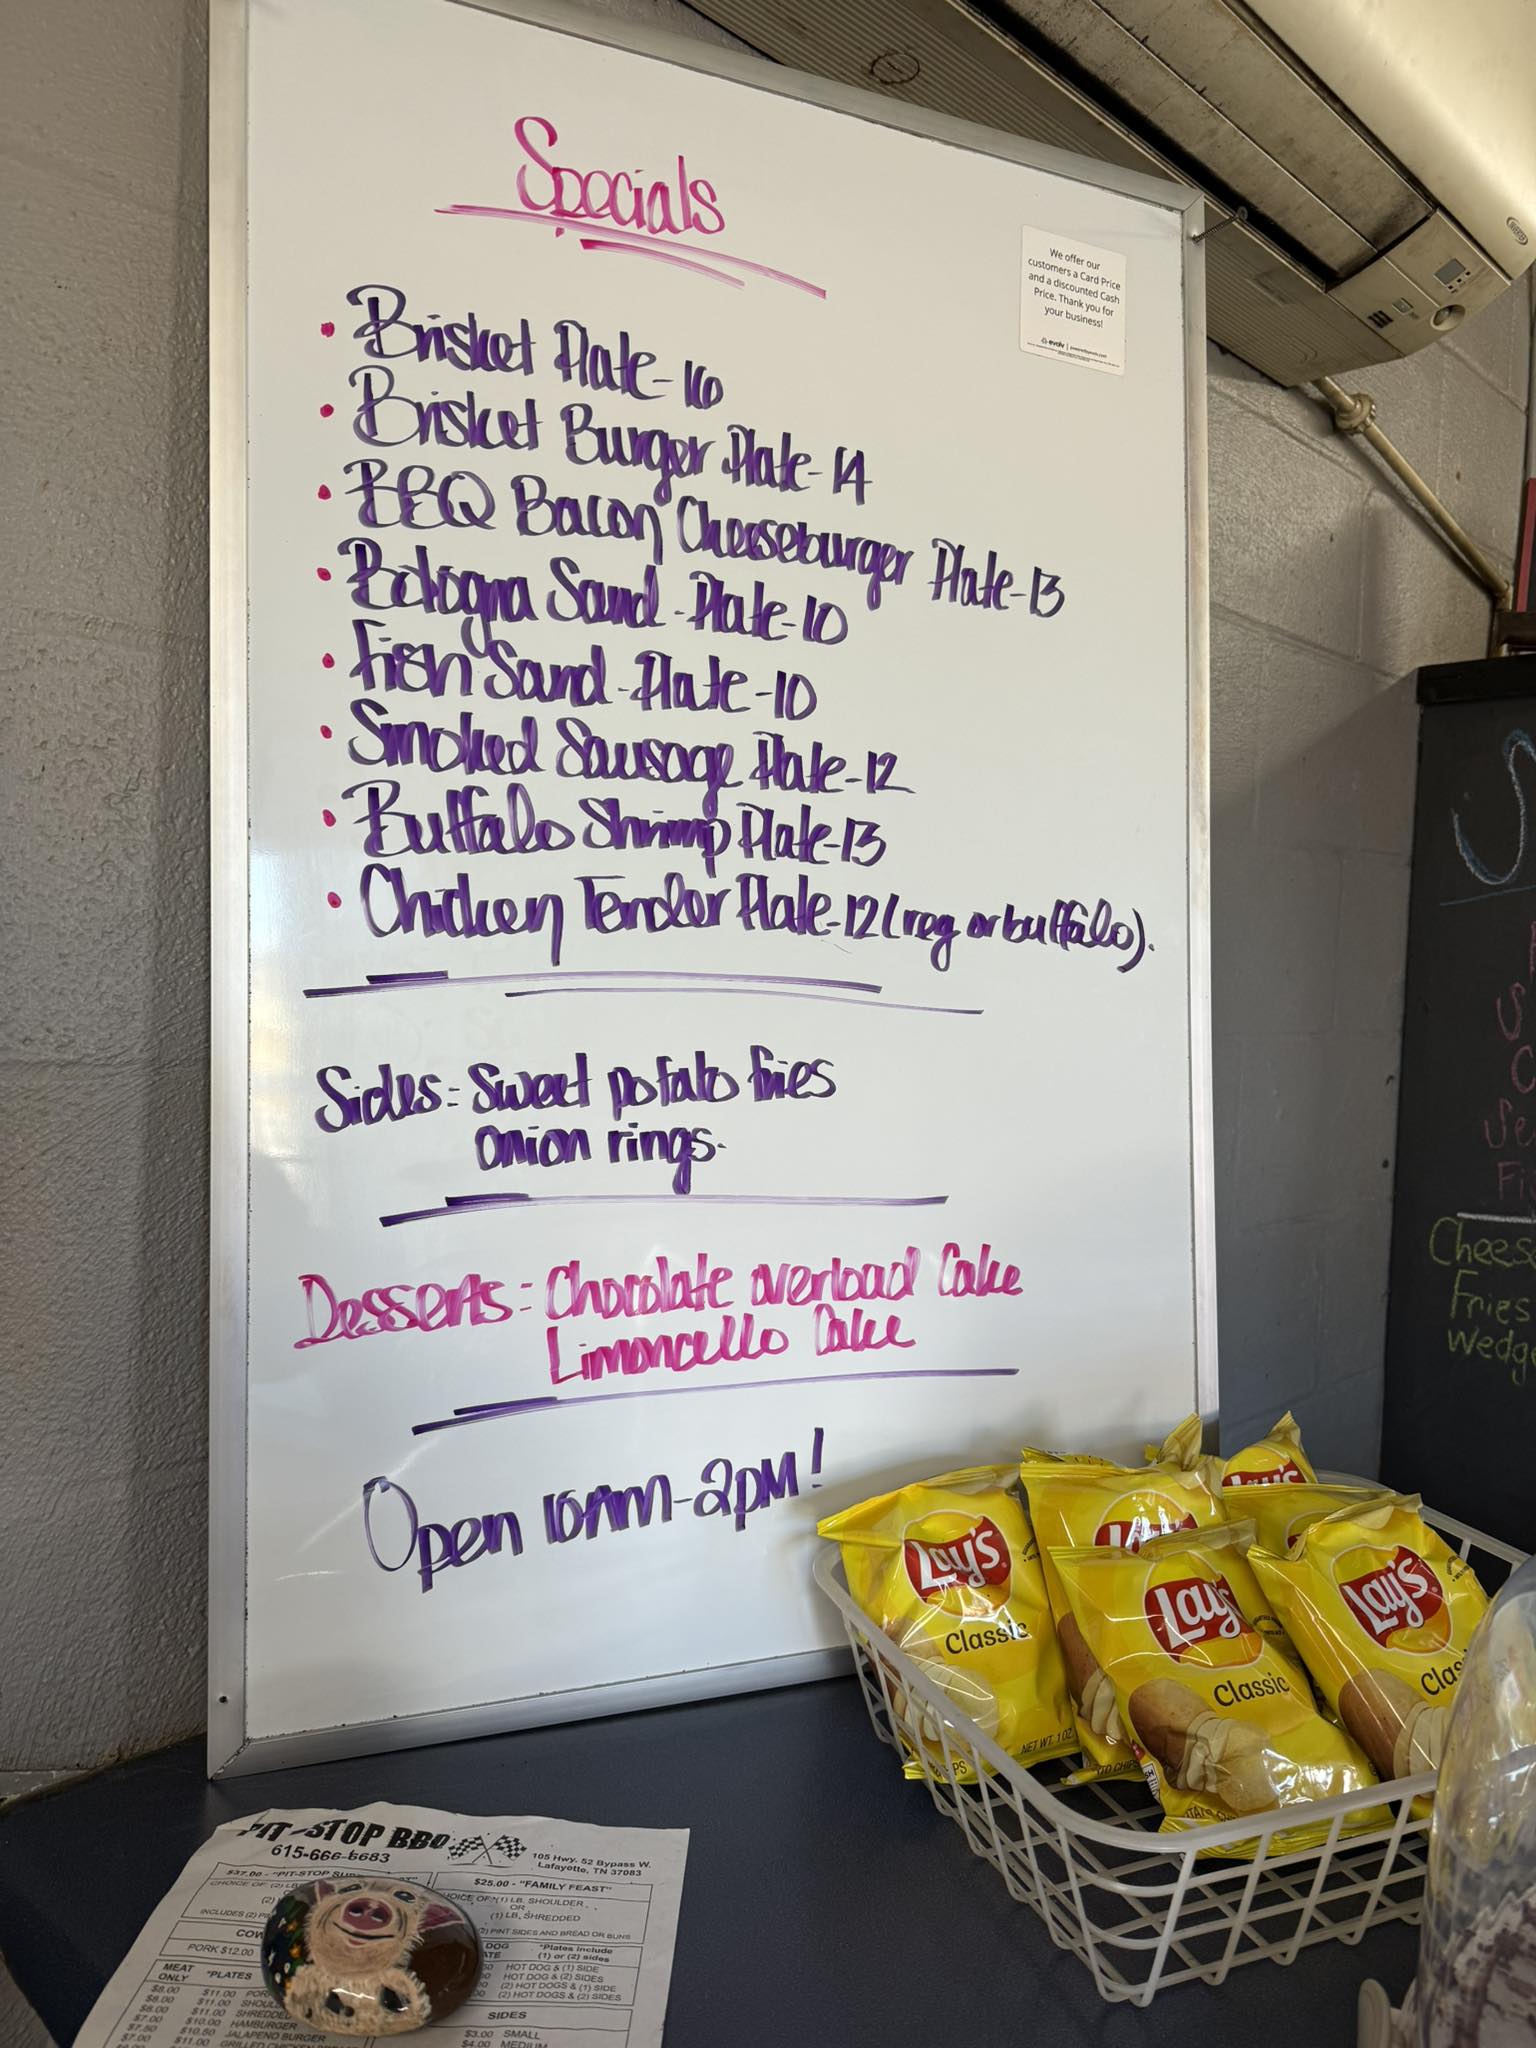 Specials
We offer our
customers a Card Price
and a discounted Cash
Price. Thank you for
your business!
evolv
• Brisket Plate-16
• Brisket Burger Plate-14
• BBQ Bacon Cheeseburger Plate-13
• Bologna Sand-Plate-10
• Fish Sand-Plate-10
• Smoked Sausage Plate-12
• Buffalo Shrimp Plate-13
• Chicken Tender Plate-12 (reg or buffalo).
Sides: Sweet potato fries
onion rings.
Desserts: Chocolate overload Cake
Limoncello Cake
Open 10AM-2PM!
Chees
Fries
Wedg
Lay's
Classic
NET WT. 1 OZ
Lay's
Classic
Lay's
Clas
Lay's
PIT-STOP BBQ
615-666-6683
105 Hwy. 52 Bypass W.
Lafayette, TN 37083
$37.00 - "PIT-STOP SUP
CHOICE OF: (2) LB
(2)
INCLUDES (2) PI
$25.00 - "FAMILY FEAST"
HOICE OF: (1) LB. SHOULDER
OR
(1) LB. SHREDDED
(2) PINT SIDES AND BREAD OR BUNS
COW
PORK $12.00
DOG *Plates include
ATE (1) or (2) sides
HOT DOG & (1) SIDE
HOT DOG & (2) SIDES
(2) HOT DOGS & (1) SIDE
(2) HOT DOGS & (2) SIDES
MEAT
ONLY *PLATES
$8.00 $11.00 POR
$8.00 $11.00 SHOUL
$8.00 $11.00 SHREDDED
$7.00 $10.00 HAMBURGER
$7.50 $10.50 JALAPENO BURGER
$7.00 $11.00 GRILLED CHICKEN
SIDES
$3.00 SMALL
$4.00 MEDIUM